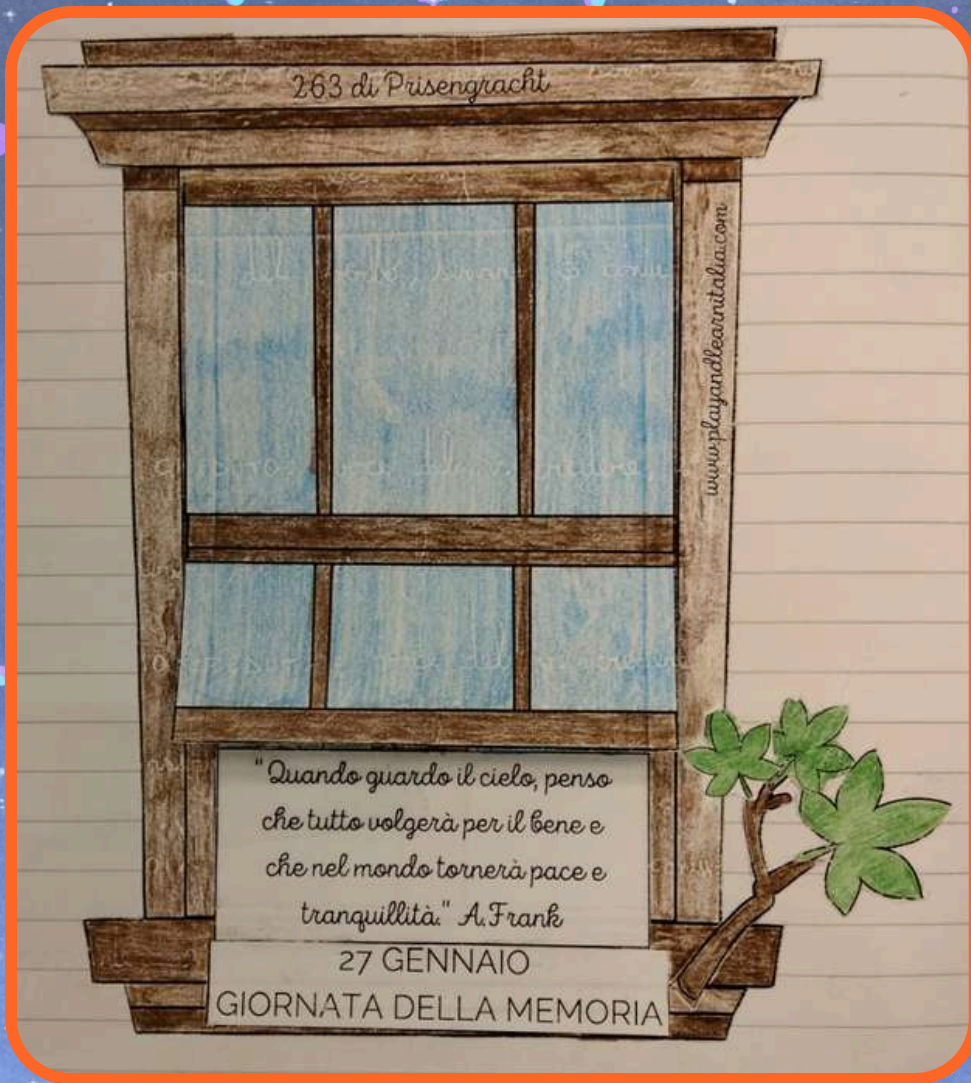 263 di Prisengracht
www.playandlearnitalia.com
"Quando guardo il cielo, penso
che tutto volgerà per il bene e
che nel mondo tornerà pace e
tranquillità." A.Frank
27 GENNAIO
GIORNATA DELLA MEMORIA